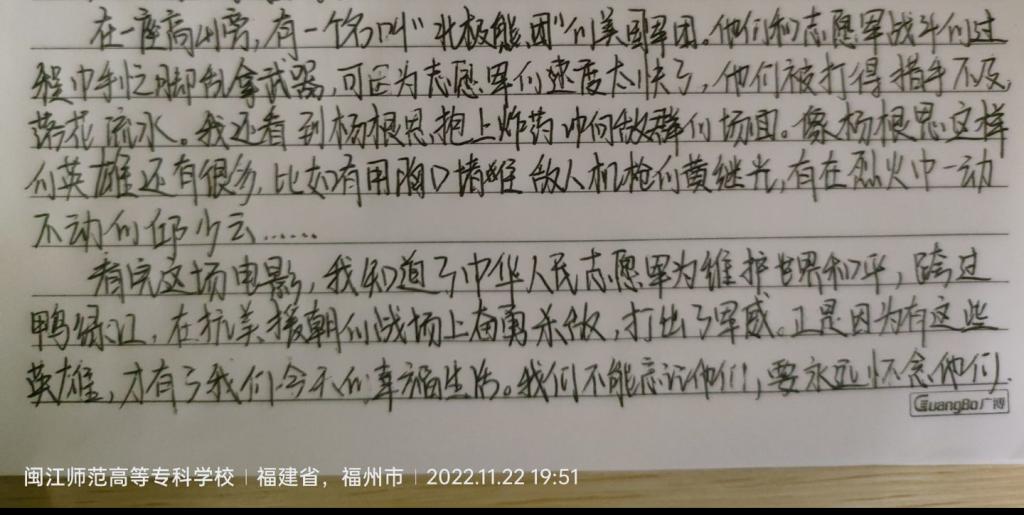 在一座高山旁，有一个名叫“北极熊团”的美国军团。他们和志愿军战斗的过
程中手忙脚乱拿武器，可因为志愿军的速度太快了，他们被打得措手不及，
落花流水。我还看到杨根思抱上炸药冲向敌群的场面。像杨根思这样
的英雄还有很多，比如有用胸口堵住敌人机枪的黄继光，有在烈火中一动
不动的邱少云……
看完这场电影，我知道了中华人民志愿军为维护世界和平，跨过
鸭绿江，在抗美援朝的战场上奋勇杀敌，打出了军威。正是因为有这些
英雄，才有了我们今天的幸福生活。我们不能忘记他们，要永远怀念他们.
GuangBo广博
闽江师范高等专科学校 | 福建省，福州市 | 2022.11.22 19:51